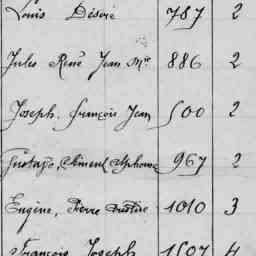 Louis Désiré 787 2
Jules René Jean Mie 886 2
Joseph, françois Jean 500 2
Gustave, Clément Alphonse 967 2
Eugène, Pierre 1010 3
François Joseph 1507 4